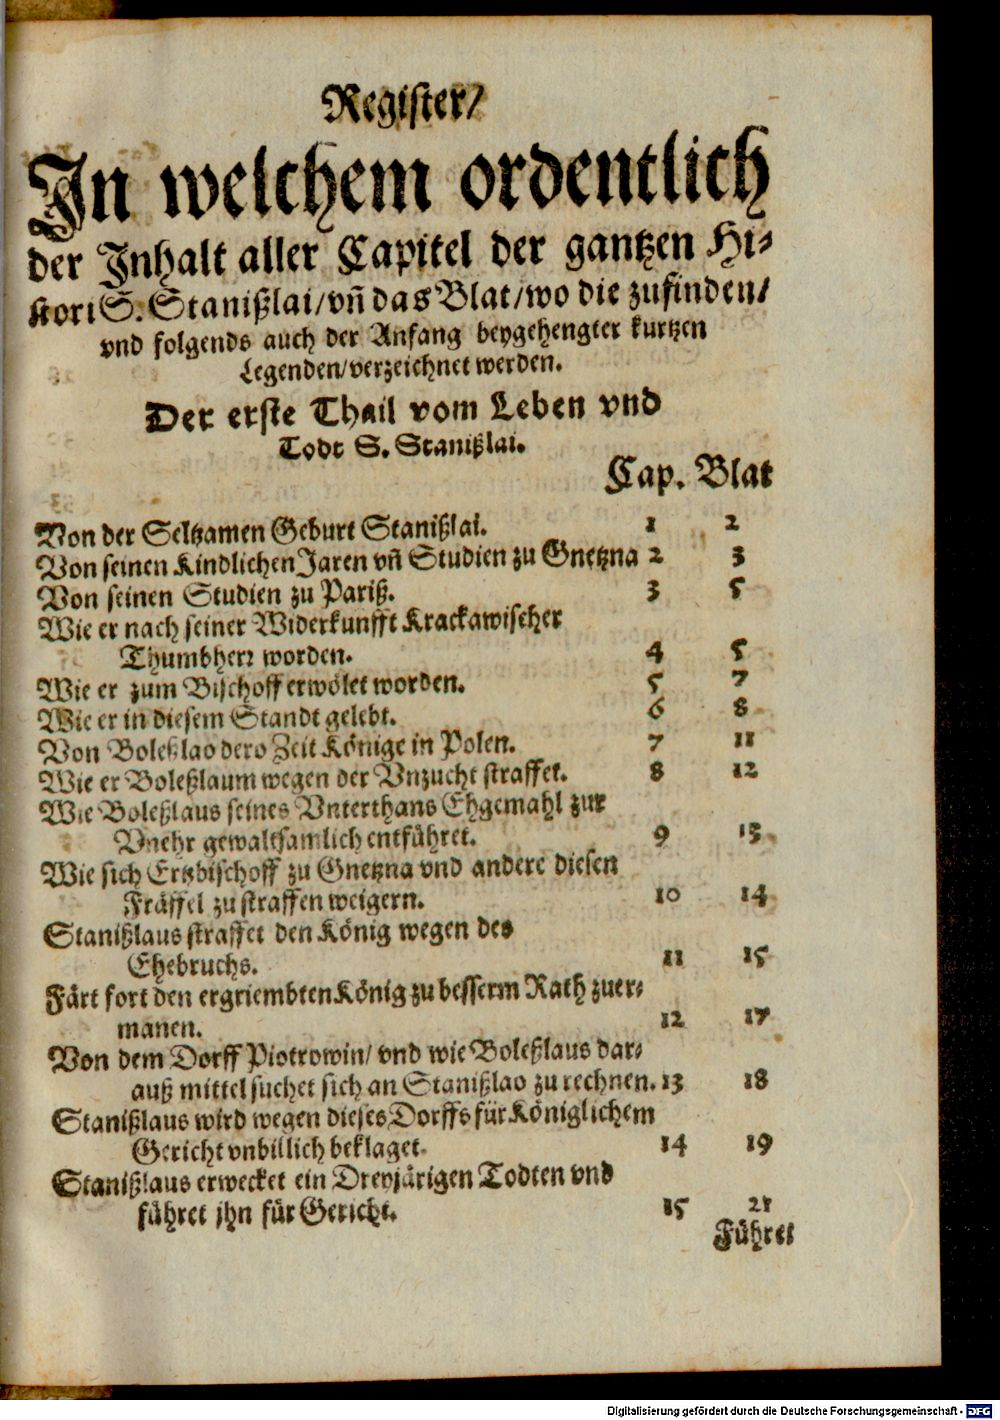 Register/
In welchem ordentlich
der Inhalt aller Capitel der gantzen Hi-
stori S. Stanißlai/vñ das Blat/wo die zufinden/
vnd folgends auch der Anfang beygehengter kurtzen
Legenden/verzeichnet werden.
Der erste Thail vom Leben vnd
Todt S. Stanißlai.
Cap. Blat
Von der Seltzamen Geburt Stanißlai. 1 2
Von seinen Kindlichen Jaren vñ Studien zu Gnetzna 2 3
Von seinen Studien zu Pariß. 3 5
Wie er nach seiner Widerkunfft Krackawischer
Thumbherr worden. 4 5
Wie er zum Bischoff erwölet worden. 5 7
Wie er in diesem Standt gelebt. 6 8
Von Boleßlao dero Zeit Könige in Polen. 7 11
Wie er Boleßlaum wegen der Vnzucht straffet. 8 12
Wie Boleßlaus seines Vnterthans Ehgemahl zur
Vnehr gewaltsamlich entführet. 9 13
Wie sich Ertzbischoff zu Gnetzna vnd andere diesen
Fräffel zu straffen weigern. 10 14
Stanißlaus straffet den König wegen des
Ehebruchs. 11 15
Färt fort den ergriembten König zu besserm Rath zuer-
manen. 12 17
Von dem Dorff Piotrowin/ vnd wie Boleßlaus dar-
auß mittel suchet sich an Stanißlao zu rechnen. 13 18
Stanißlaus wird wegen dieses Dorffs für Königlichem
Gericht vnbillich beklaget. 14 19
Stanißlaus erwecket ein Dreyjärigen Todten vnd
führet jhn für Gericht. 15 21
Führet
Digitalisierung gefördert durch die Deutsche Forschungsgemeinschaft - DFG